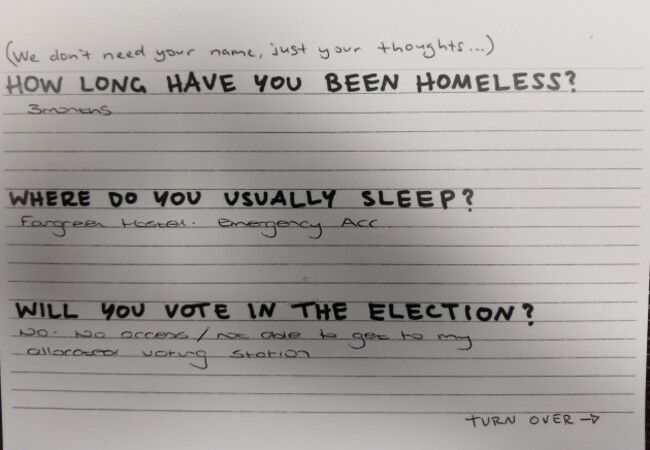 (We don't need your name, just your thoughts...)
HOW LONG HAVE YOU BEEN HOMELESS?
3months
WHERE DO YOU USUALLY SLEEP?
Hostel. Emergency Acc
WILL YOU VOTE IN THE ELECTION?
No. No access / not able to get to my
allocated voting station
TURN OVER →